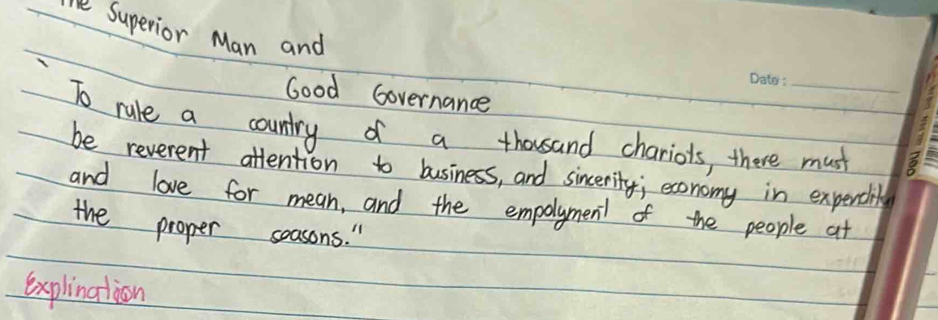 The Superior Man and
Good Governance
Date:
To rule a country of a thousand chariots, there must
be reverent attention to business, and sincerity; economy in expenditu
and love for mean, and the empolyment of the people at
the proper seasons."
Explination